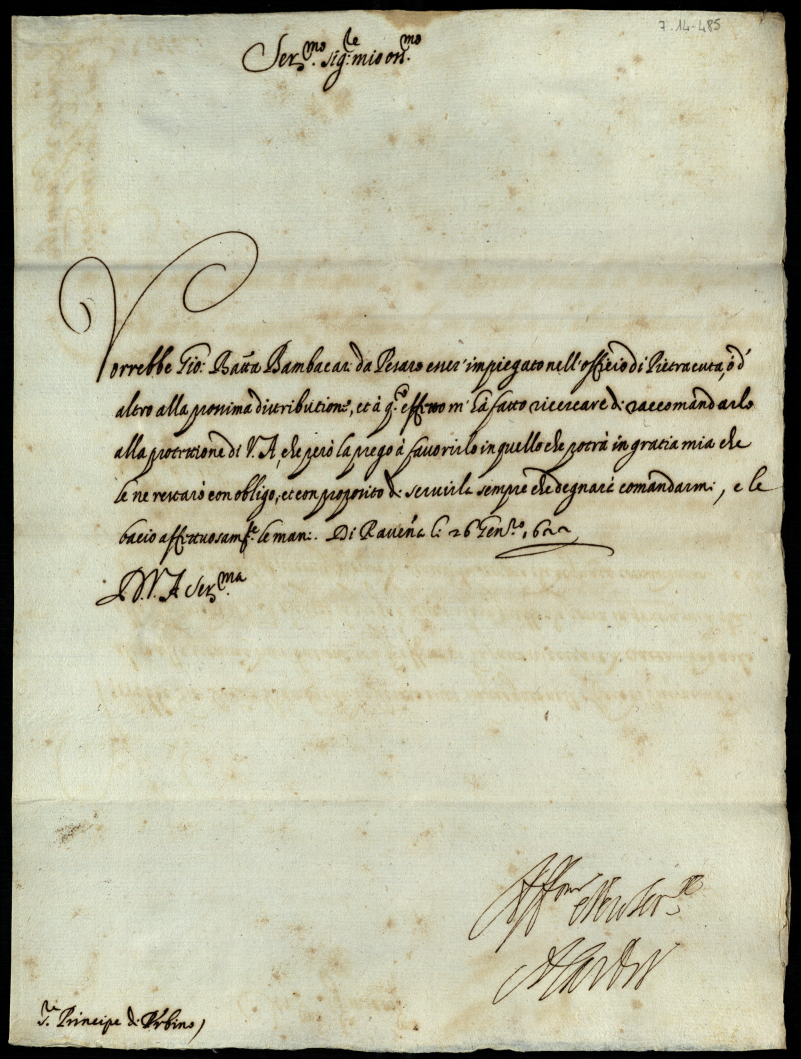 7-14-485
Ser.mo Sig.re mio oss.mo
Vorrebbe Gio: Batta Bambacari da Pesaro esser impiegato nell'officio di Pietracuta, ò d'
altro alla prossima distributione, et à q.o effetto m'hà fatto ricercare di raccomandarlo
alla protettione di V. A, che però la prego à favorirlo in quello che potrà in gratia mia che
le ne restarò con obligo, et con proposito di servirla sempre che degnarà comandarmi, e le
bacio affettuosam.te le mani. Di Ravena li 26 Gen.ro 1622
D. V. A Ser.ma
Aff.mo
S.re Principe di Urbino